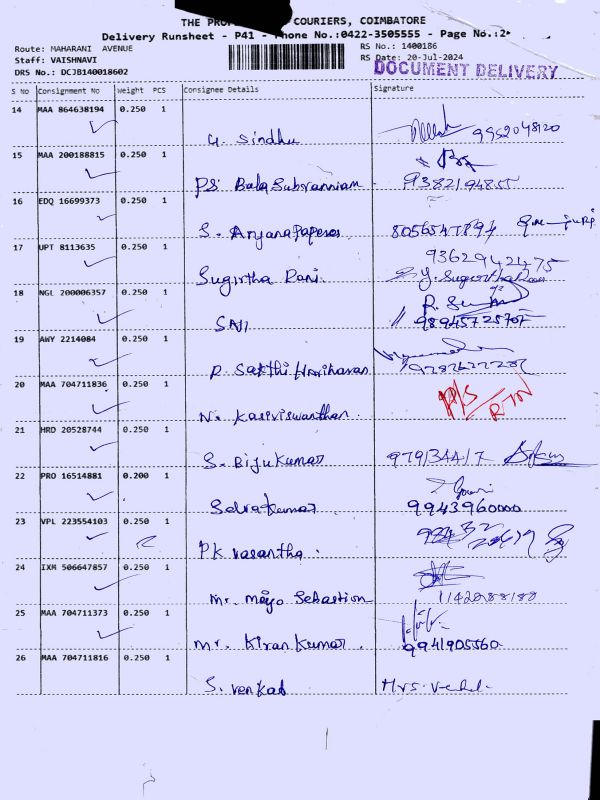 THE COURIERS, COIMBATORE
Delivery Runsheet - P41 - Phone No.:0422-3505555 - Page No.:2
Route: MAHARANI AVENUE RS No.: 1400186
Staff: VAISHNAVI RS Date: 20-Jul-2024
DRS No.: DCJB140018602 DOCUMENT DELIVERY
S No Consignment No Weight PCS Consignee Details Signature
14 MAA 864638194 0.250 1
G. Sindhu 9952048120
15 MAA 200188815 0.250 1
PS. Bala Subramniam 9382194855
16 EDQ 16699373 0.250 1
S. 8056547894
17 UPT 8113635 0.250 1 9362942475
Sugirtha Rani. Y. Sugirtha Rani
18 NGL 200006357 0.250 1
SAJI 9894572570
19 AWY 2214084 0.250 1
P. Sakthi Hariharan
20 MAA 704711836 0.250 1
N. Kasiviswanthan. RTN
21 HRD 20528744 0.250 1
S. Bijukumar 979134417
22 PRO 16514881 0.200 1
Selvakumar 9943960000
23 VPL 223554103 0.250 1
PK Vasantha.
24 IXM 506647857 0.250 1
Mr. Mayo Sebastion
25 MAA 704711373 0.250 1
Mr. Kiran Kumar. 9941905560
26 MAA 704711816 0.250 1
S. Venkat Mrs.